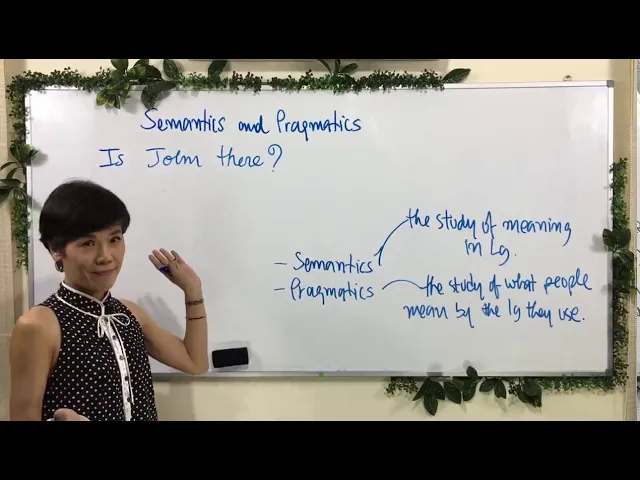 Semantics and Pragmatics
Is John there?
- Semantics
the study of meaning
in Lg.
- Pragmatics
the study of what people
mean by the lg they use.